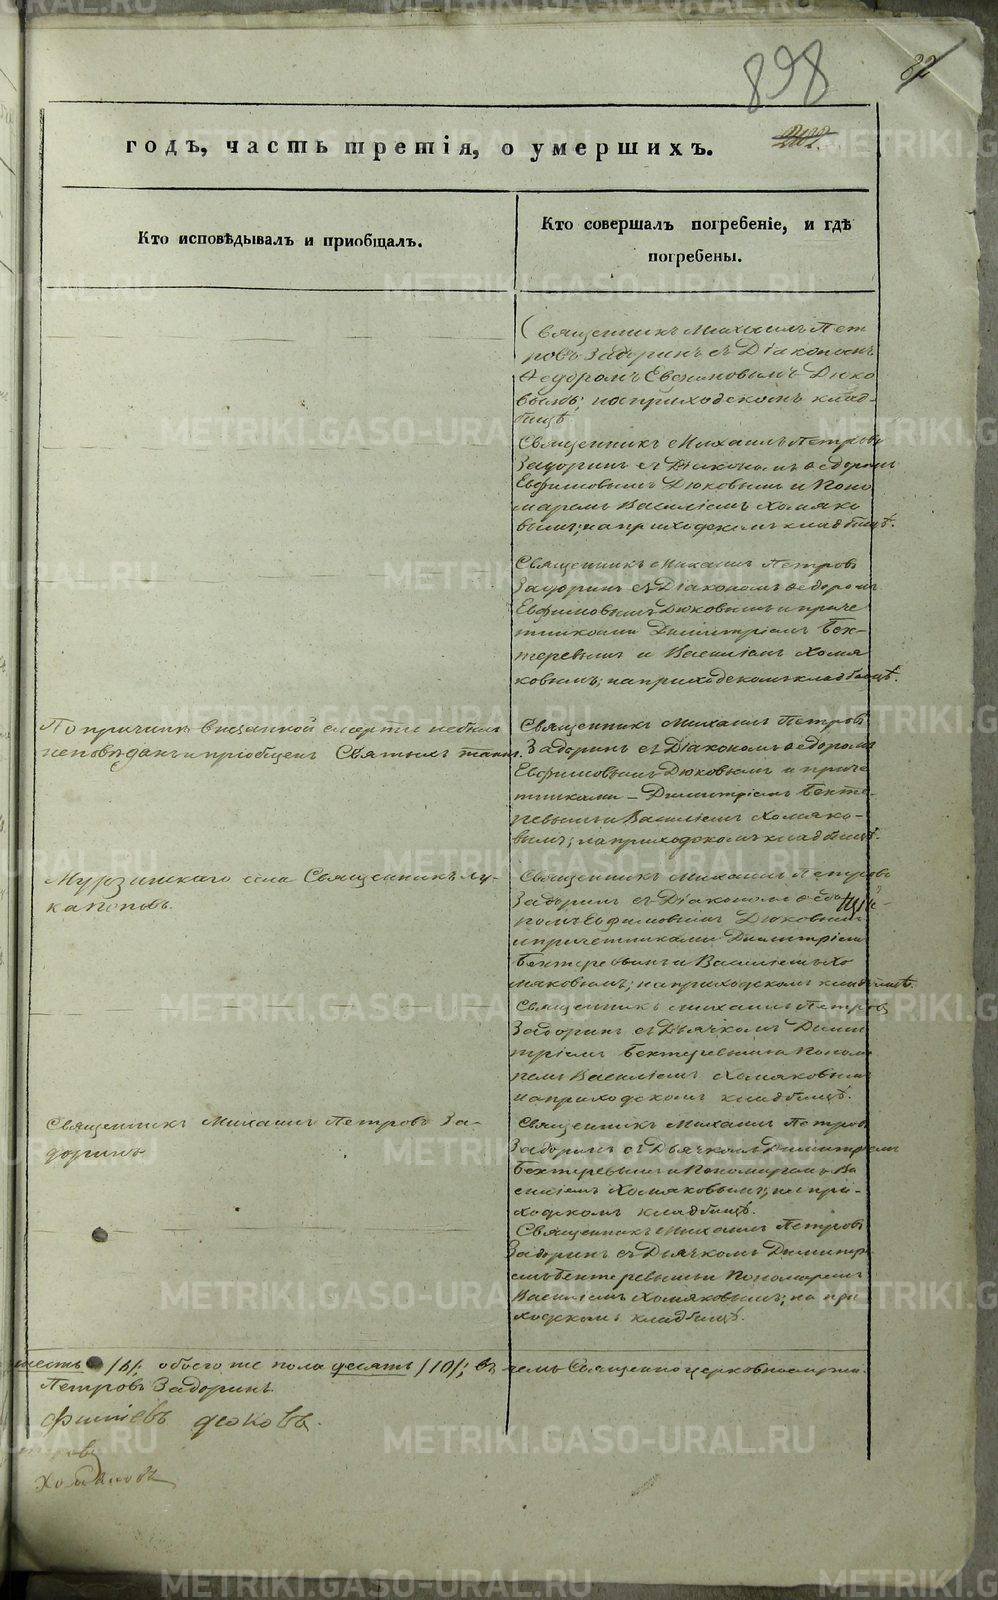 898
82
годъ, часть третія, о умершихъ.
Кто исповѣдывалъ и приобщалъ.
Кто совершалъ погребеніе, и гдѣ
погребены.
Священникъ Михаилъ Пет
ровъ Задоринъ съ Діакономъ
Ѳедоромъ Евфимовымъ Дюко
вымъ; на приходскомъ клад-
бищѣ
Священникъ Михаилъ Петровъ
Задоринъ съ Діакономъ Ѳедоромъ
Евфимовымъ Дюковымъ и Поно
маремъ Василіемъ Хомяко
вымъ; на приходскомъ кладбищѣ.
Священникъ Михаилъ Петровъ
Задоринъ съ Діакономъ Ѳедоромъ
Евфимовымъ Дюковымъ и приче
тниками Димитріемъ Бех-
теревымъ и Василіемъ Хомя
ковымъ; на приходскомъ кладбищѣ.
По причинѣ внезапной смерти небылъ
исповѣданъ и пріобщенъ Святыхъ таинъ.
Священникъ Михаилъ Петровъ
Задоринъ съ Діакономъ Ѳедоромъ
Евфимовымъ Дюковымъ и приче
тниками Димитріемъ Бехте-
ревымъ и Василіемъ Хомяко-
вымъ; на приходскомъ кладбищѣ.
Мурзинскаго села Священникъ Лу-
ка Поповъ.
Священникъ Михаилъ Петровъ
Задоринъ съ Діакономъ Ѳедо
ромъ Евфимовымъ Дюковымъ
и причетниками Димитріемъ
Бехтеревымъ и Василіемъ Хо
мяковымъ; на приходскомъ кладбищѣ.
Священникъ Михаилъ Петровъ
Задоринъ съ Дьячкомъ Дими
тріемъ Бехтеревымъ и Понома
ремъ Василіемъ Хомяковымъ
на приходскомъ кладбищѣ.
Священникъ Михаилъ Петровъ За-
доринъ
Священникъ Михаилъ Петровъ
Задоринъ съ Дьячкомъ Димитріемъ
Бехтеревымъ и Пономаремъ Ва
силіемъ Хомяковымъ; на при-
ходскомъ кладбищѣ.
Священникъ Михаилъ Петровъ
Задоринъ съ Дьячкомъ Димитрі
емъ Бехтеревымъ и Пономаремъ
Василіемъ Хомяковымъ; на при
ходскомъ кладбищѣ.
шесть /6/; обоего же пола десять /10/; въ чемъ Священноцерковнослужи
Петровъ Задоринъ
фимiевъ Дюковъ.
Хомяковъ
METRIKI.GASO-URAL.RU